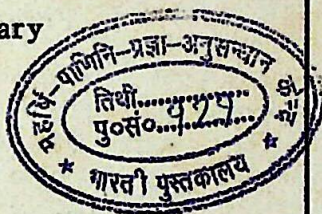 ary
महर्षि-पाणिनि-प्रज्ञा-अनुसन्धान
तिथी..............
पु०सं०...929......
भारती पुस्तकालय